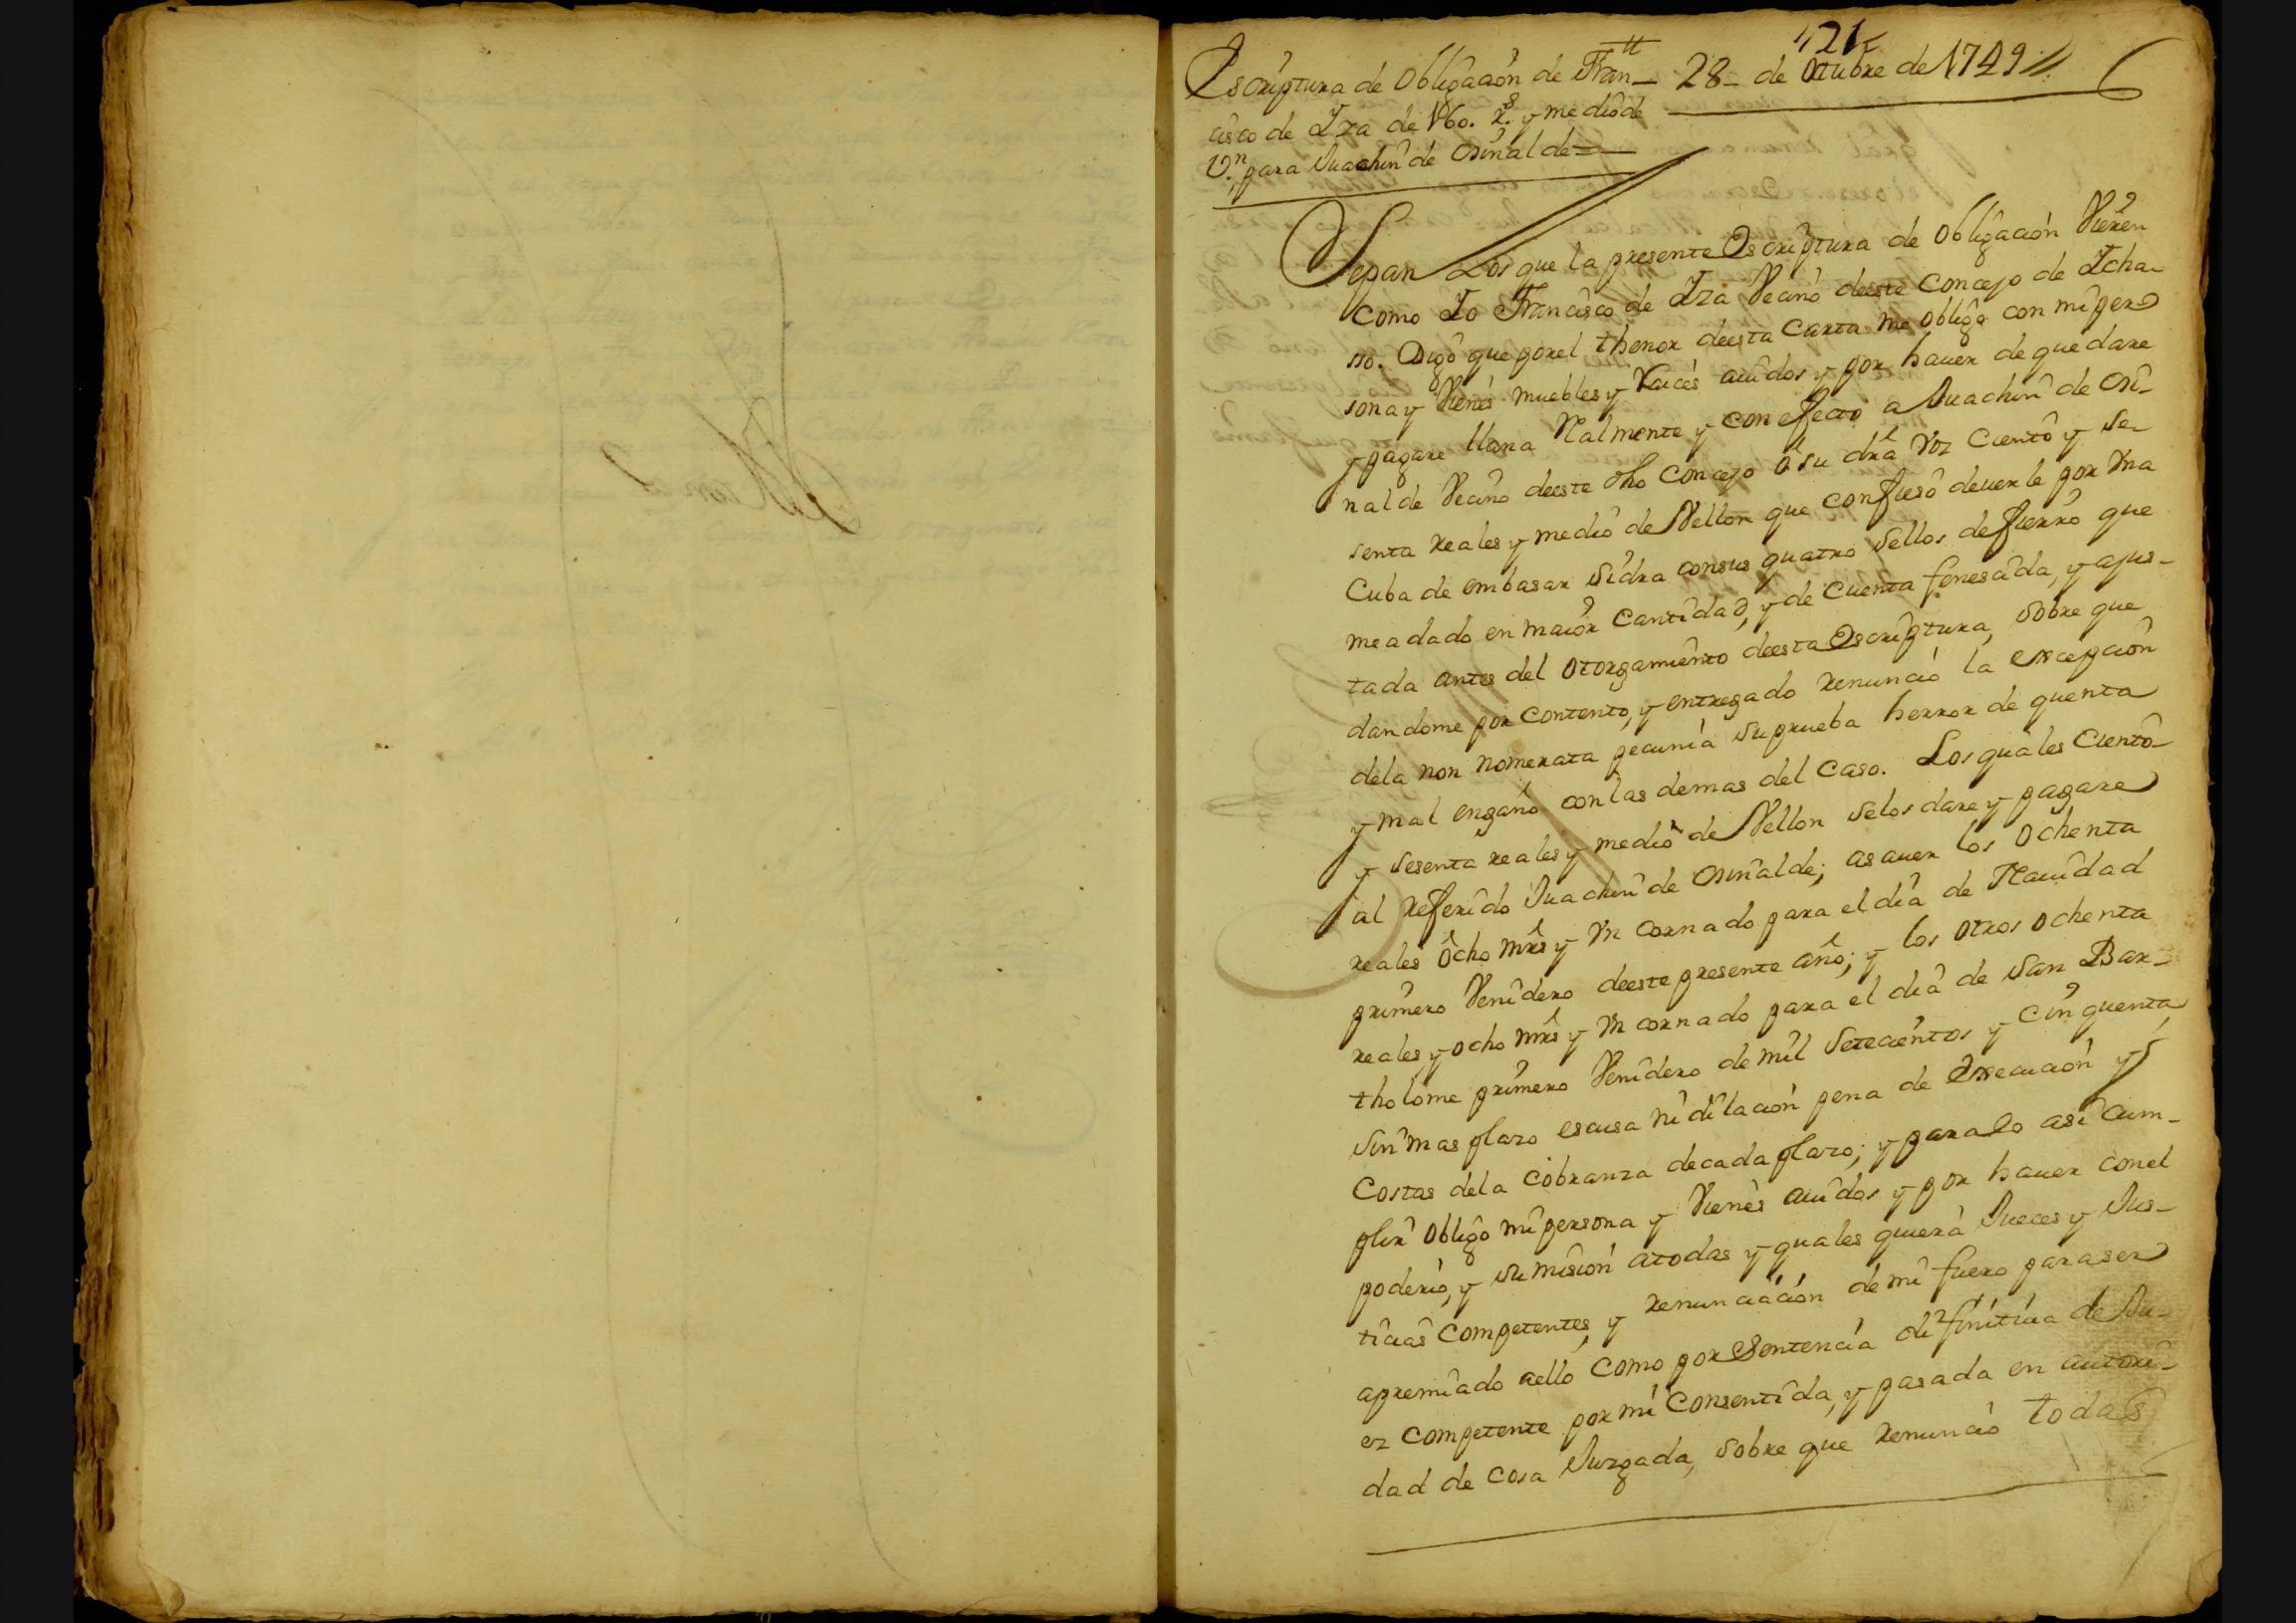 421
Escriptura de Obligaciôn de Fran– 28– de Otubre de 1749
cisco de Iza de 160. r.s y medio de
V.n, para Juachin de Osinalde=
Sepan Los que la presente Escriptura de Obligaciòn Vieren
como Io Francisco de Iza Vecino deeste Concejo de Icha–
sso. Digo que porel thenor deesta Carta me obligo con mi per
sona y Vienes muebles y Raices auidos y por hauer de que dare
y pagare llana Ralmente y con efecto a Juachin de Osi–
nalde Vecino deeste dho Concejo ô su dra Voz Ciento y Se–
senta reales y medio de Vellon que confieso deuerle por Vna
Cuba de embasar sidra consus quatro sellos de fierro que
me a dado en maior Cantidad, y de Cuenta fenescida, y ajus–
tada antes del otorgamiento deesta Escriptura, sobre que
dandome por contento, y entregado renuncio la excepcion
dela non nomerata pecunia su prueba herror de quenta
y mal engano con las demas del caso. Los quales Ciento
y sesenta reales y medio de Vellon selos dare y pagare
al referido Juachin de Osinalde; asauer los ochenta
reales ôcho mrs y Vn cornado para el dia de Nauidad
primero Venidero deeste presente año; y los otros ochenta
reales, y ocho mrs y Vn cornado para el dia de San Bar–
tholome primero Venidero de mil setecientos y cinquenta,
sin mas plazo escusa ni dilacion pena de execucion y
Costas dela cobranza decada plazo; y paralo asi cum–
plir obligo mi persona y Vienes auidos y por hauer conel
poderio, y sumision atodas y quales quiera Jueces y Jus–
ticias competentes, y renunciaciòn de mi fuero paraser
apremiado aello como por Sentencia difinitiua de Ju–
ez competente por mi Consentida, y pasada en autori–
dad de cosa Juzgada, sobre que renuncio todas